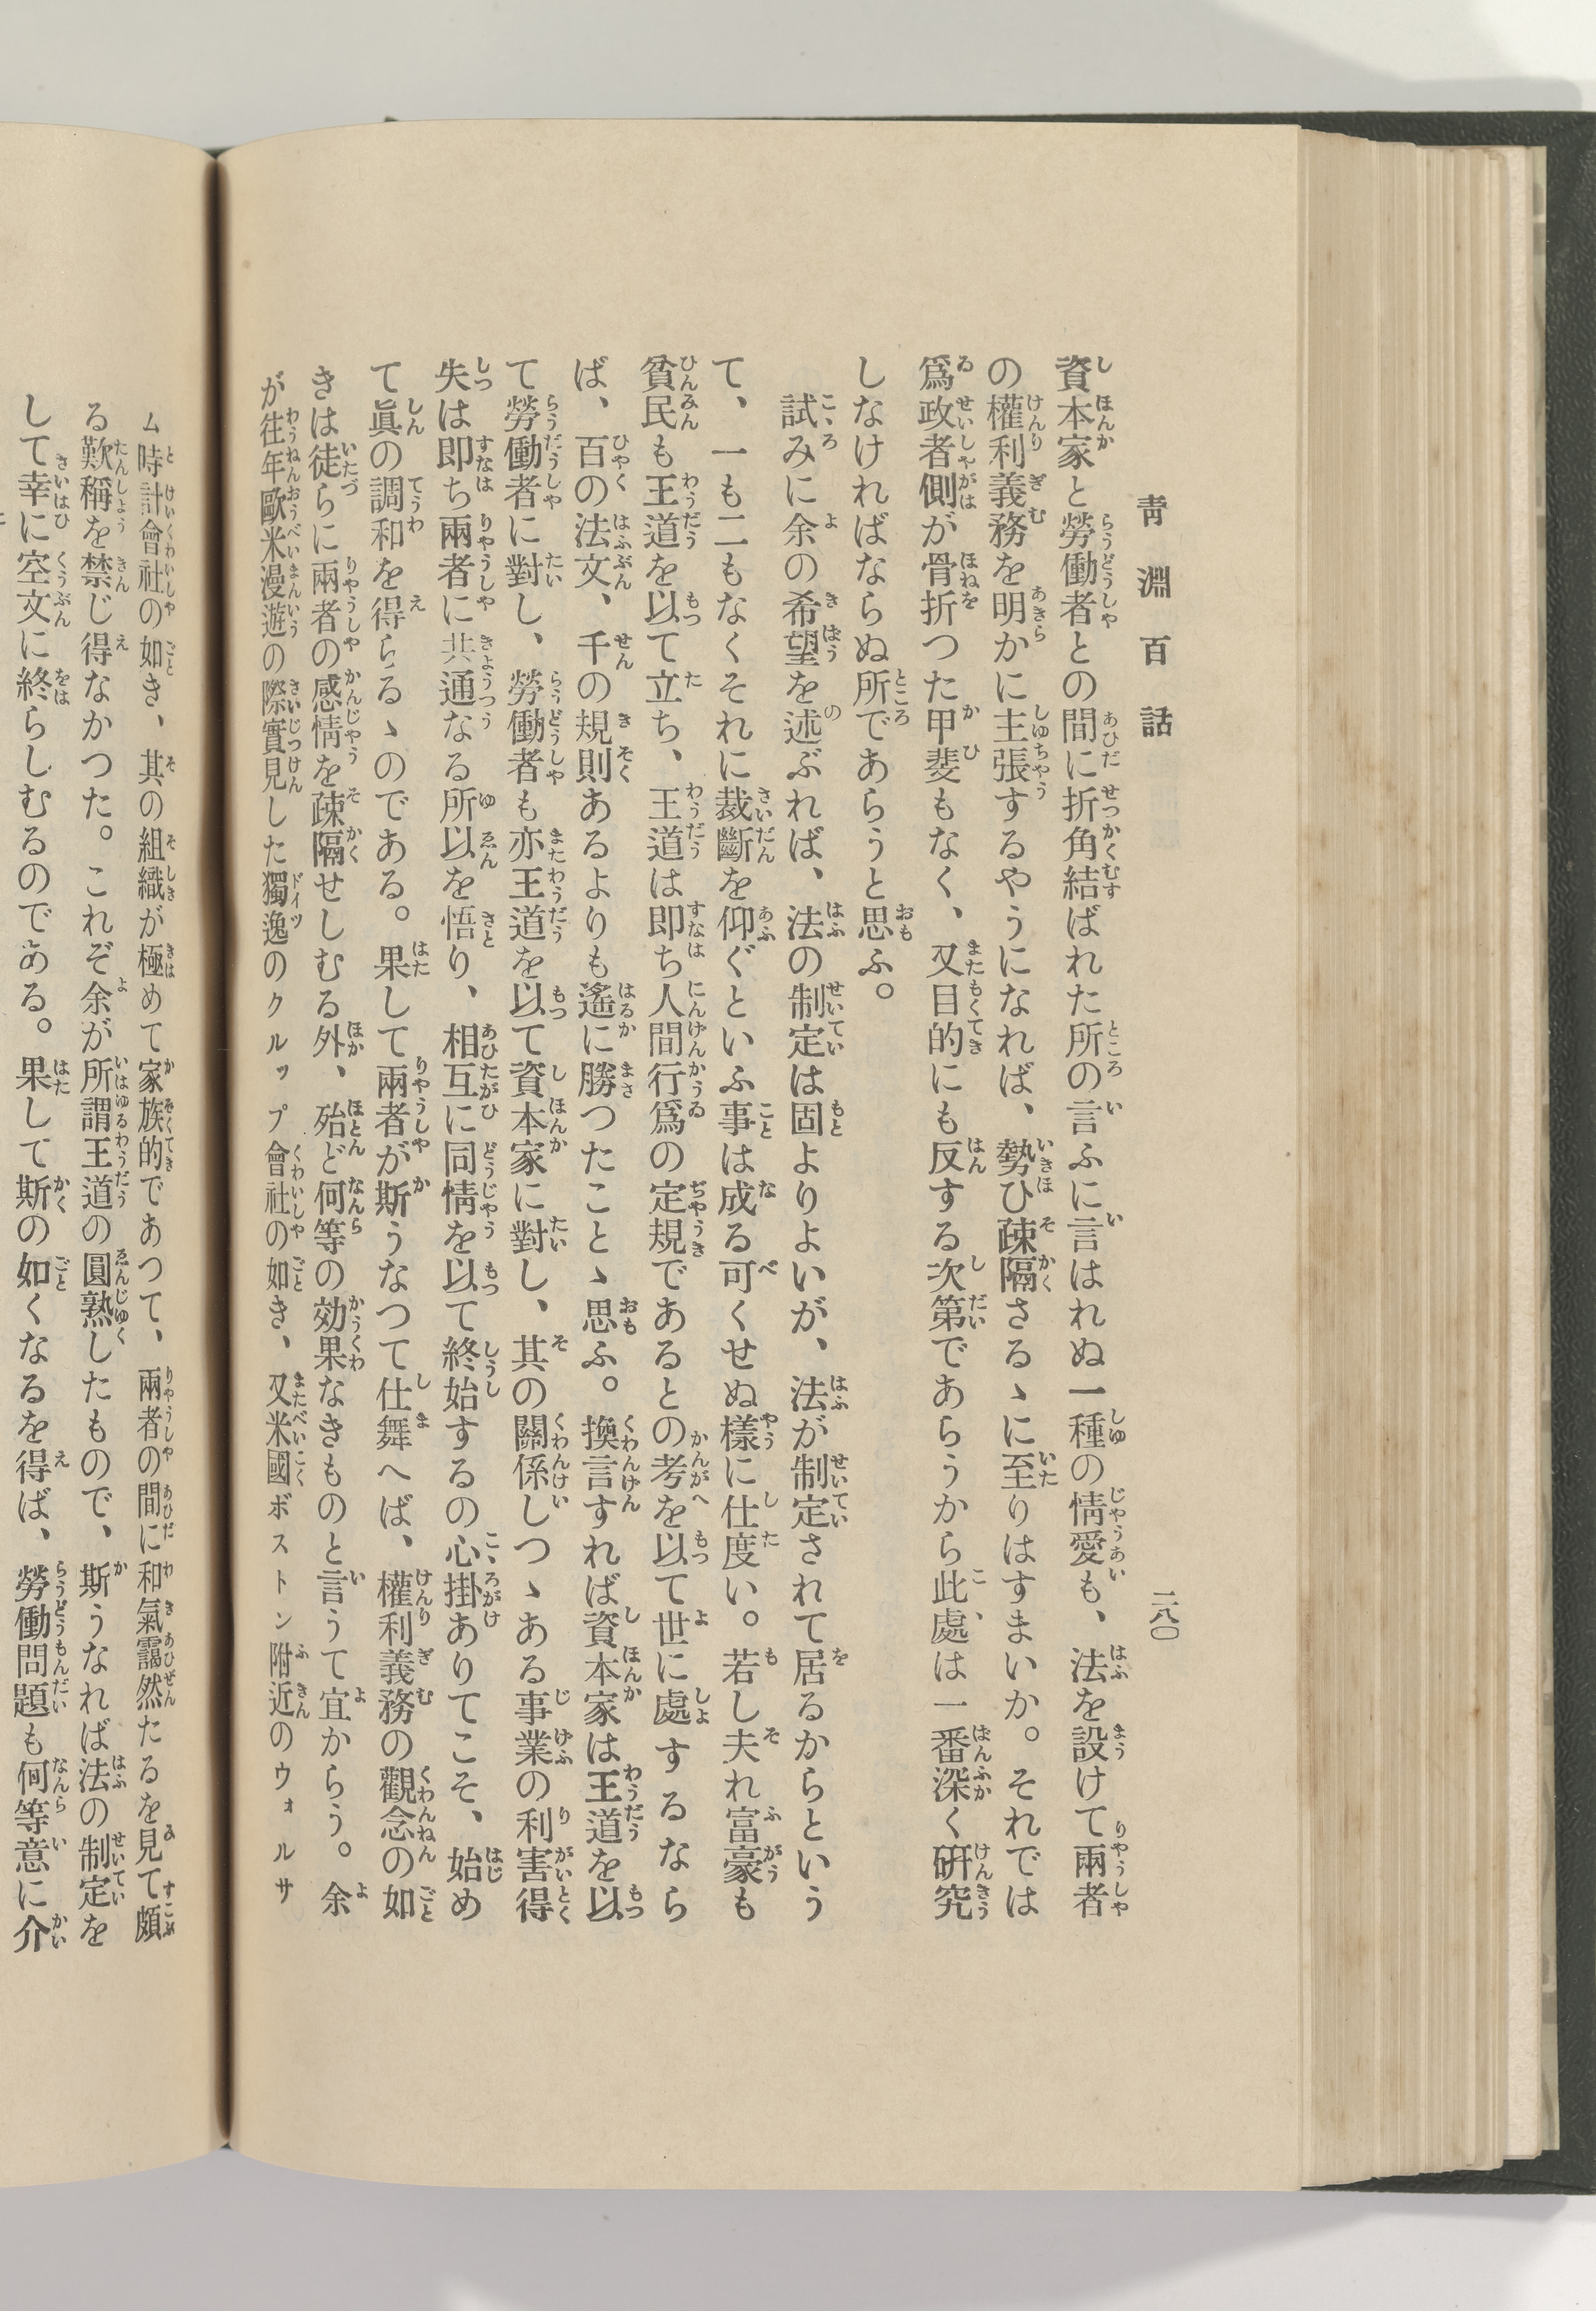 靑淵百話
二八〇
資本家と勞働者との間に折角結ばれた所の言ふに言はれぬ一種の情愛も、法を設けて兩者
の權利義務を明かに主張するやうになれば、勢ひ疎隔さるゝに至りはすまいか。それでは
爲政者側が骨折つた甲斐もなく、又目的にも反する次第であらうから此處は一番深く硏究
しなければならぬ所であらうと思ふ。
試みに余の希望を述ぶれば、法の制定は固よりよいが、法が制定されて居るからという
て、一も二もなくそれに裁斷を仰ぐといふ事は成る可くせぬ樣に仕度い。若し夫れ富豪も
貧民も王道を以て立ち、王道は卽ち人間行爲の定規であるとの考を以て世に處するなら
ば、百の法文、千の規則あるよりも遙に勝つたことゝ思ふ。換言すれば資本家は王道を以
て勞働者に對し、勞働者も亦王道を以て資本家に對し、其の關係しつゝある事業の利害得
失は卽ち兩者に共通なる所以を悟り、相互に同情を以て終始するの心掛ありてこそ、始め
て眞の調和を得らるゝのである。果して兩者が斯うなつて仕舞へば、權利義務の觀念の如
きは徒らに兩者の感情を疎隔せしむる外、殆ど何等の効果なきものと言うて宜からう。余
が往年歐米漫遊の際實見した獨逸のクルップ會社の如き、又米國ボストン附近のウォルサ
ム時計會社の如き、其の組織が極めて家族的であつて、兩者の間に和氣靄然たるを見て頗
る歎稱を禁じ得なかつた。これぞ余が所謂王道の圓熟したもので、斯うなれば法の制定を
して幸に空文に終らしむるのである。果して斯の如くなるを得ば、勞働問題も何等意に介